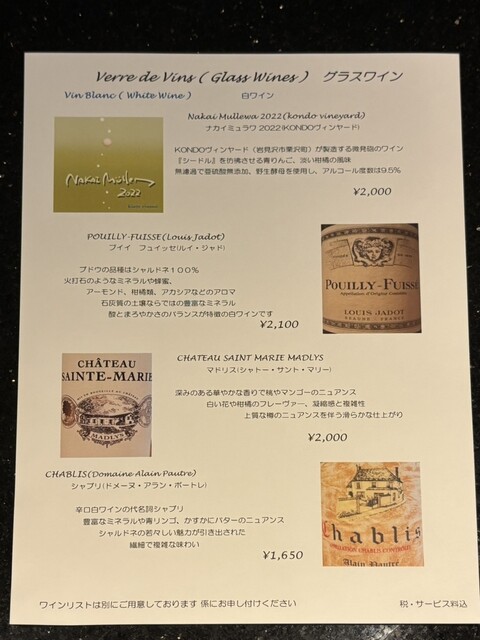 Verre de Vins ( Glass Wines ) グラスワイン
Vin Blanc ( White Wine ) 白ワイン
Nakai Mullewa 2022(kondo vineyard)
ナカイミュラワ 2022(KONDOヴィンヤード)
KONDOヴィンヤード（岩見沢市栗沢町）が製造する微発砲のワイン
『シードル』を彷彿させる青りんご、淡い柑橘の風味
無濾過で亜硫酸無添加、野生酵母を使用し、アルコール度数は9.5%
¥2,000
Nakai Müllewa
2022
POUILLY-FUISSE(Louis Jadot)
プイイ フュイッセ(ルイ・ジャド)
ブドウの品種はシャルドネ１００％
火打石のようなミネラルや蜂蜜、
アーモンド、柑橘類、アカシアなどのアロマ
石灰質の土壌ならではの豊富なミネラル
酸とまろやかさのバランスが特徴の白ワインです
¥2,100
POUILLY-FUISSÉ
LOUIS JADOT
BEAUNE - FRANCE
CHÂTEAU
SAINTE-MARIE
MADLYS
CHATEAU SAINT MARIE MADLYS
マドリス(シャトー・サント・マリー)
深みのある華やかな香りで桃やマンゴーのニュアンス
白い花や柑橘のフレーヴァー、凝縮感と複雑性
上質な樽のニュアンスを伴う滑らかな仕上がり
¥2,000
CHABLIS(Domaine Alain Pautre)
シャブリ(ドメーヌ・アラン・ポートレ)
辛口白ワインの代名詞シャブリ
豊富なミネラルや青リンゴ、かすかにバターのニュアンス
シャルドネの若々しい魅力が引き出された
繊細で複雑な味わい
¥1,650
Chablis
APPELLATION CHABLIS CONTRÔLÉE
Alain Pautre
ワインリストは別にご用意しております 係にお申し付けください
税・サービス料込